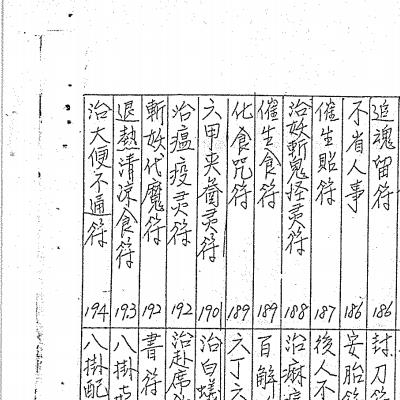 追魂留符 186
不省人事 186
催生貼符 187
治妖斬鬼怪灵符 188
催生食符 189
化食咒符 189
六甲夹啬灵符 190
治瘟疫灵符 192
斬妖伏魔符 192
退熱清涼食符 193
治大便不通符 194
封刀符
安胎符
後人不
治麻
百解
六丁六
治白蟻
治赴席
書符
八掛
八掛配